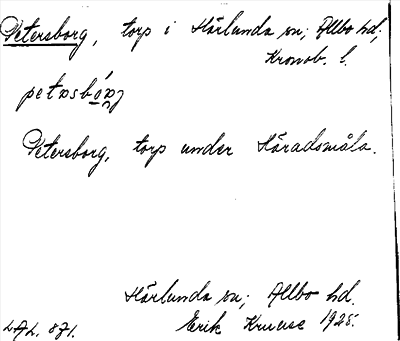 Petersborg, torp i Härlunda sn; Allbo hd;
Kronob. l.
Petersborg, torp under Häradsmåla.
Härlunda sn; Allbo hd.
Erik Kruuse 1925.